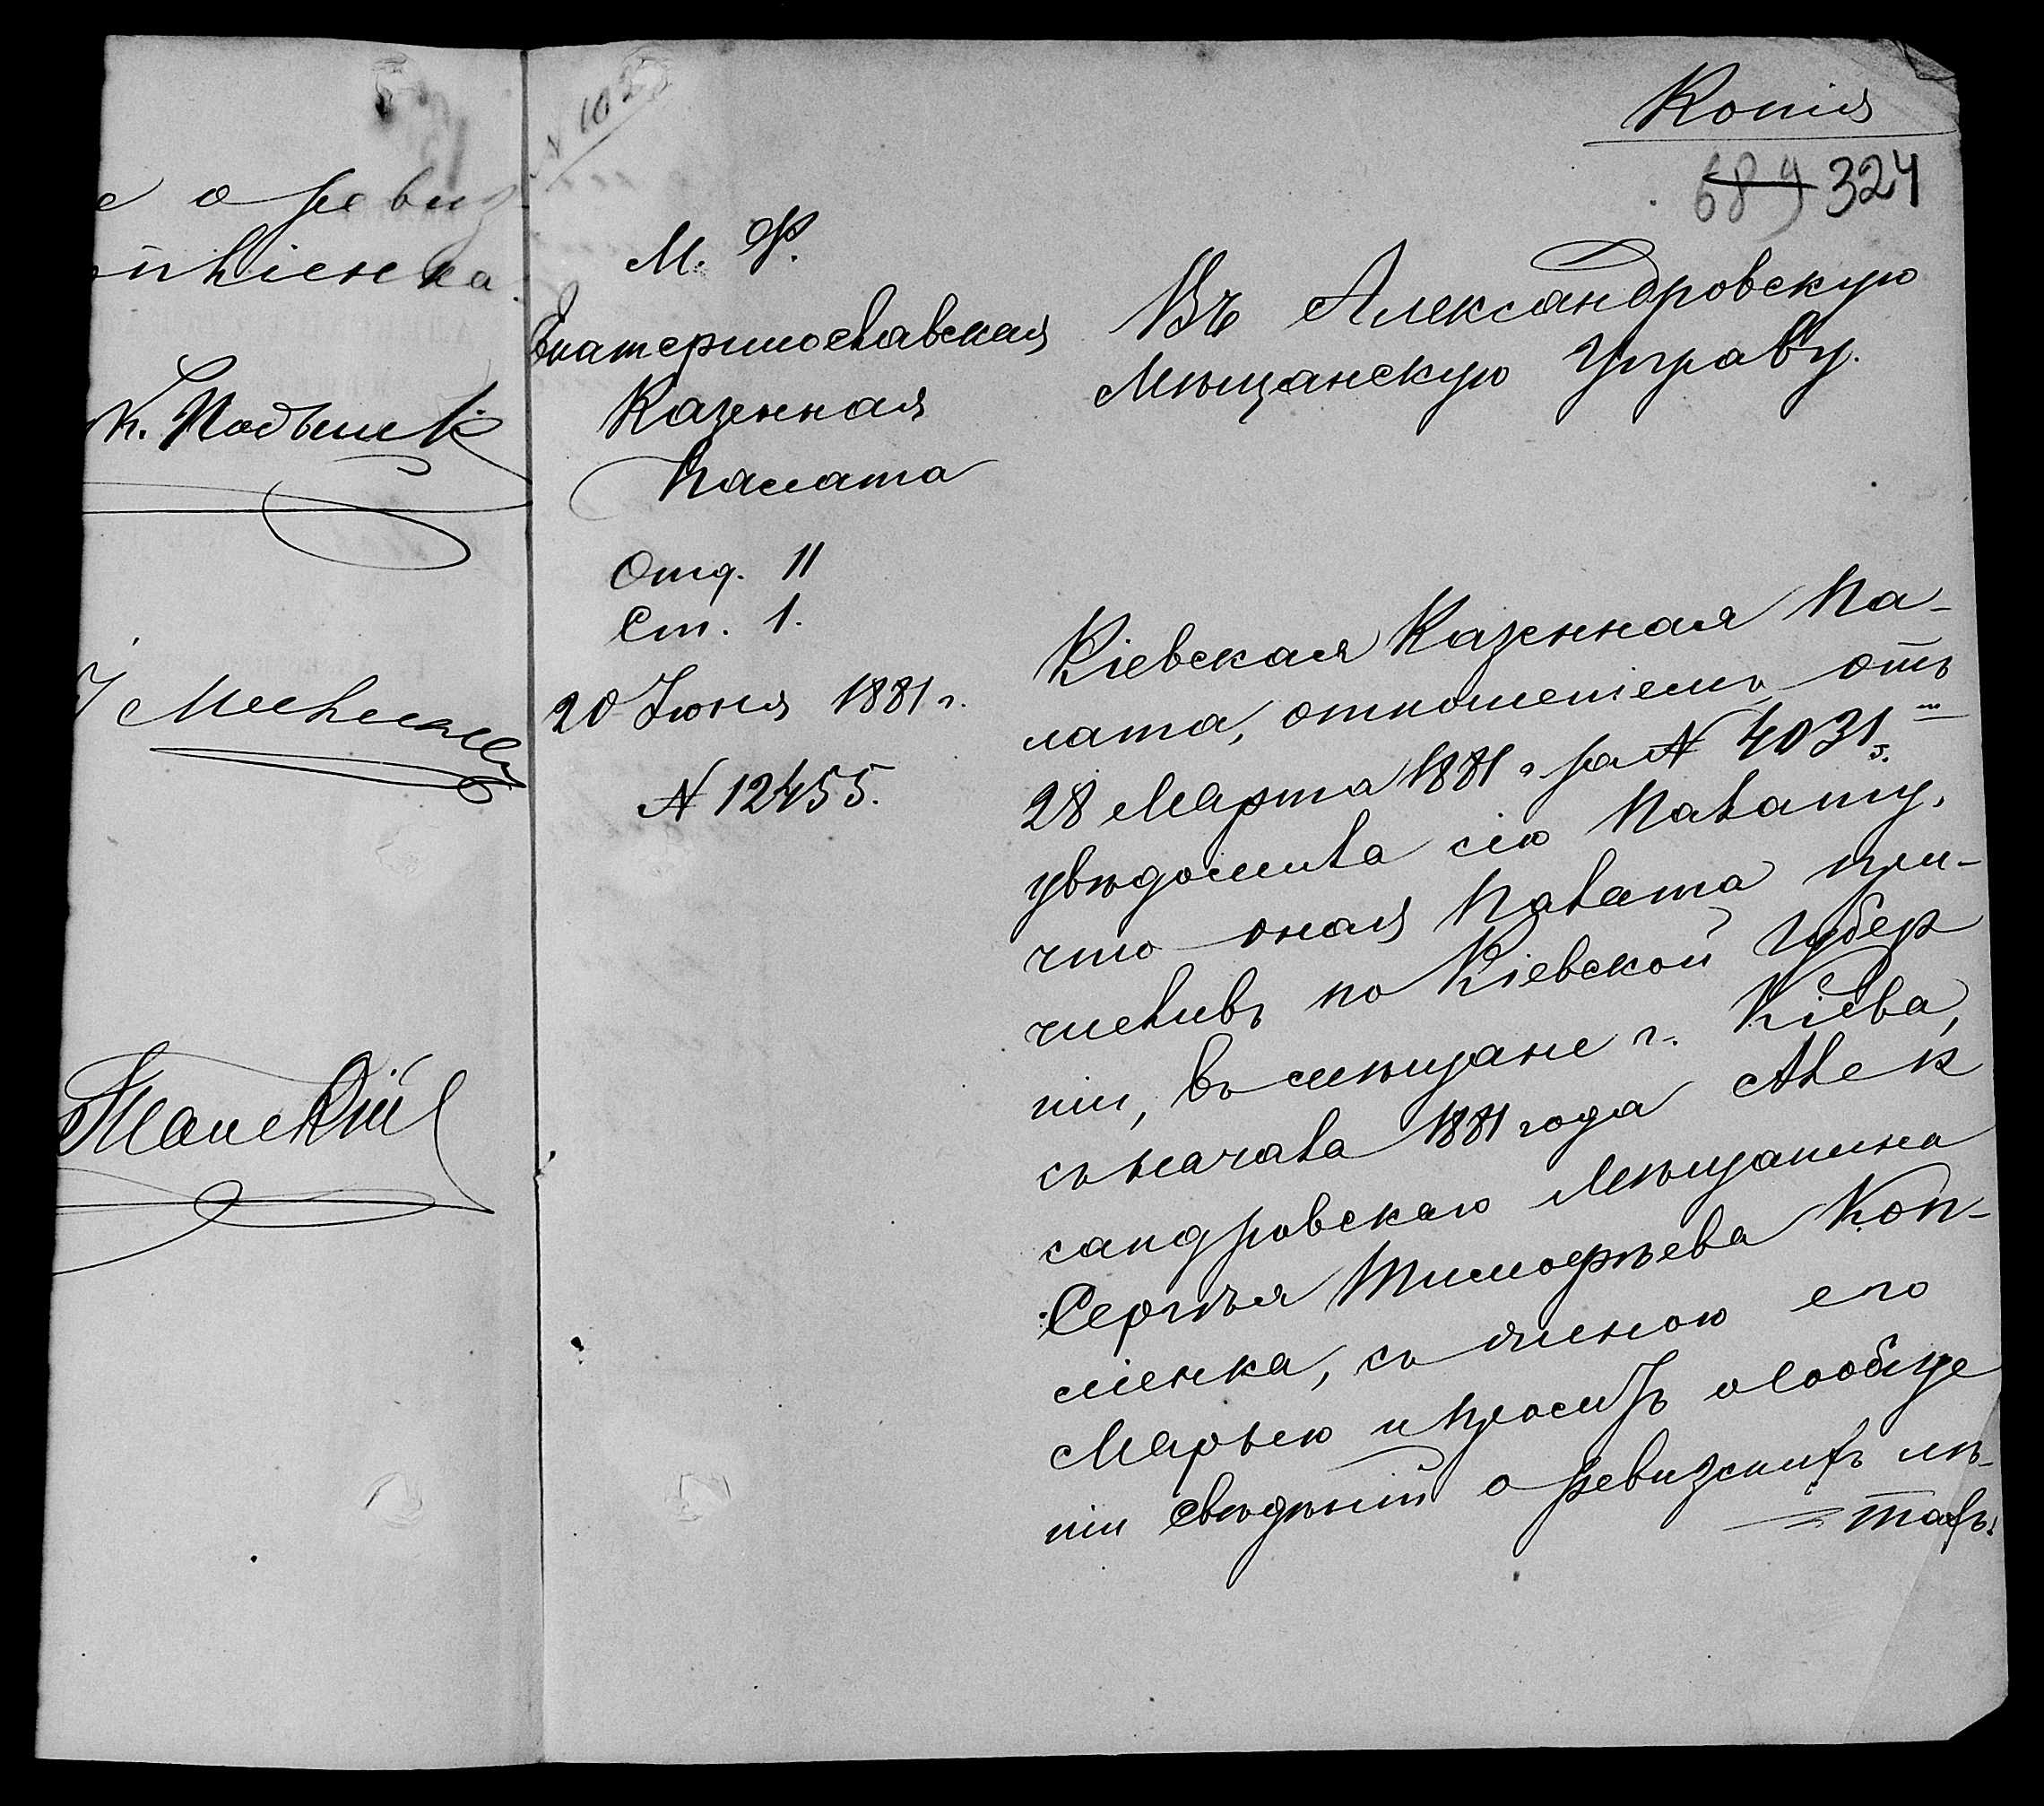 е о ревиз
пліенка.
N 10
Копія
689 324
М. Ф.
Екатеринославская
Казенная
Палата
Отд. II
Ст. 1.
20 Іюня 1881 г.
N 12455.
Въ Александровскую
Мѣщанскую Управу.
Кіевская Казенная Па-
лата, отношеніемъ отъ
28 Марта 1881 г за N 4031
увѣдомила сію Палату,
что оная Палата при-
числивъ по Кіевской Губер
ніи, въ мѣщане г. Кіева,
съ начала 1881 года Алек
сандровскаго Мѣщанина
Сергѣя Тимофѣева Коп-
ліенка, съ женою его
Марьею и проситъ о сообще
ніи свѣдѣній о ревизскихъ лѣ-
тахъ